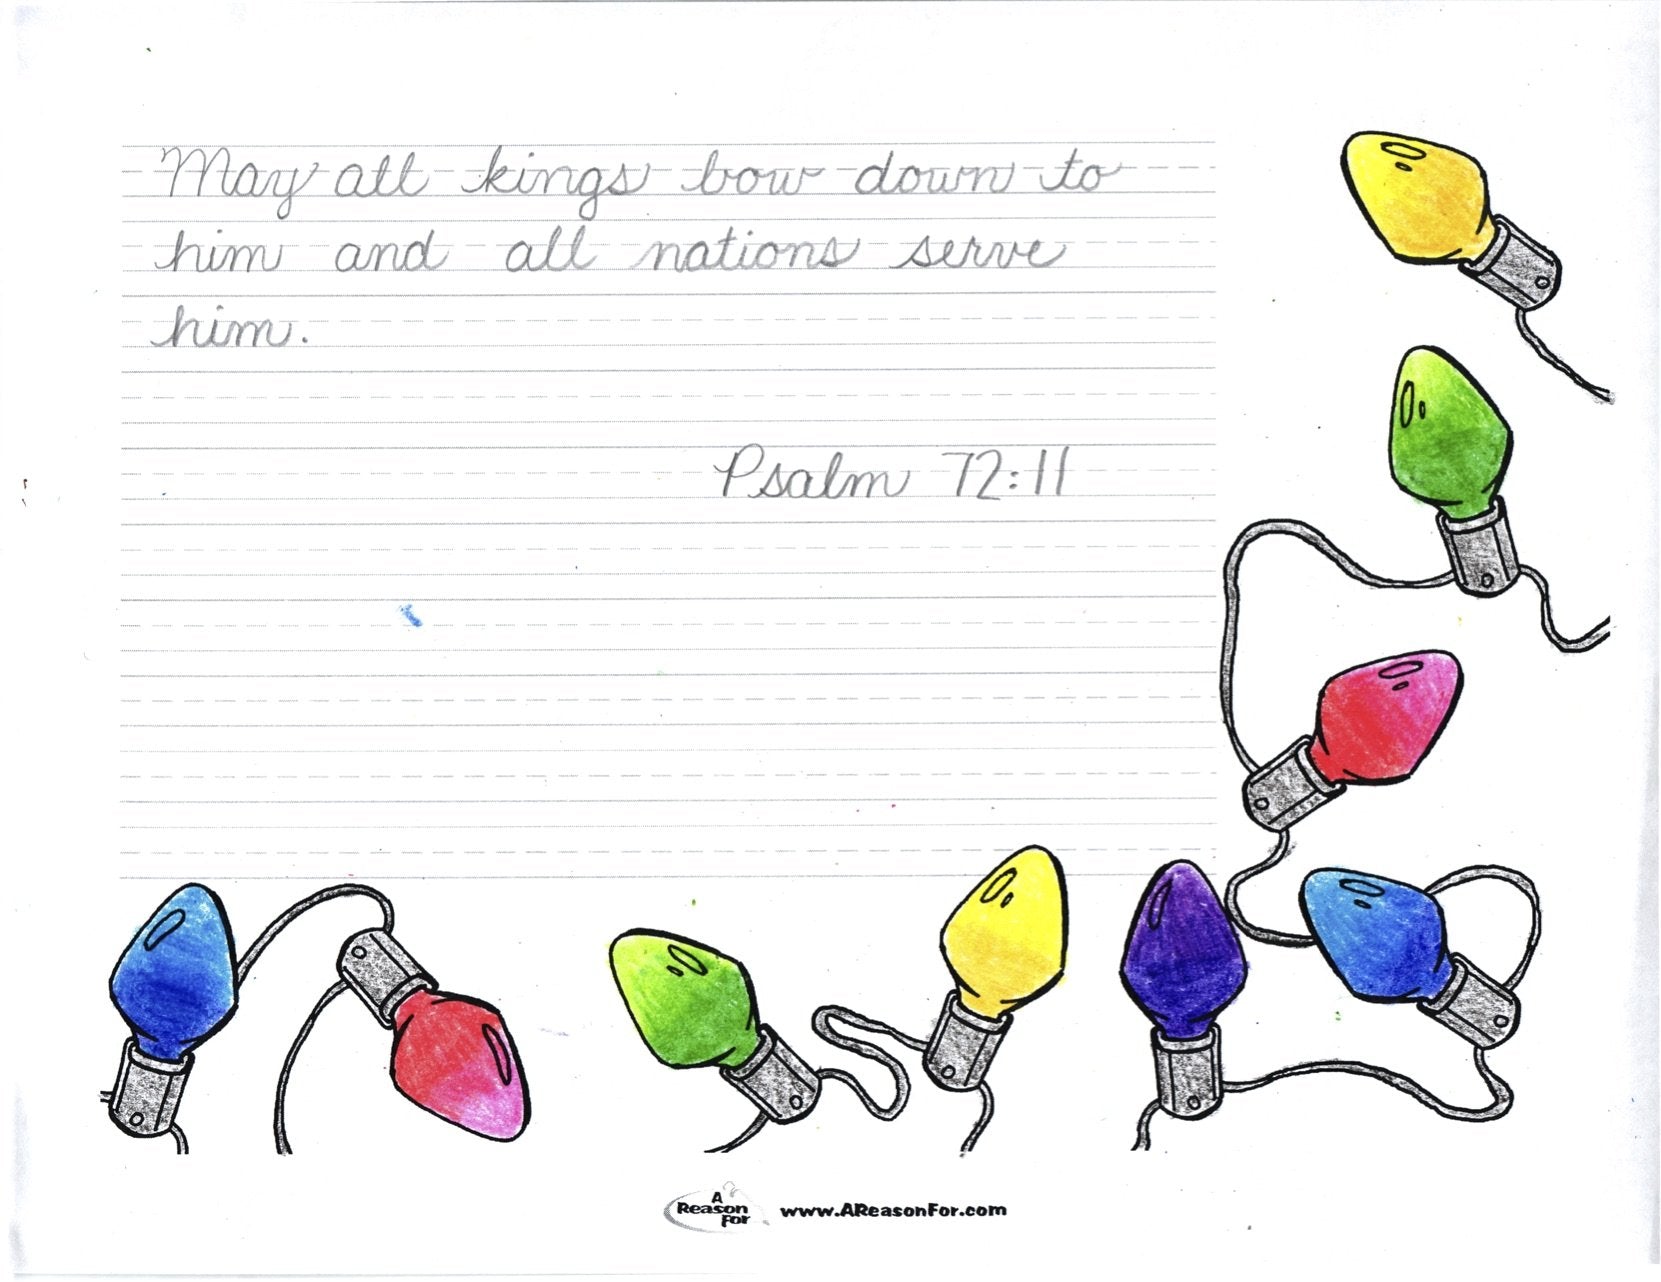 May all kings bow down to
him and all nations serve
him.
Psalm 72:11
A
Reason
For
www.AReasonFor.com